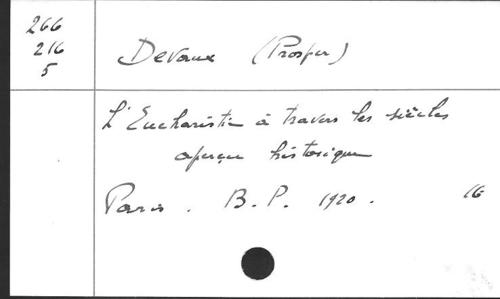 266
216
5
Devaux (Prosper)
L'Eucharistie à travers les siècles
aperçu historique
Paris. B.P. 1920. 16